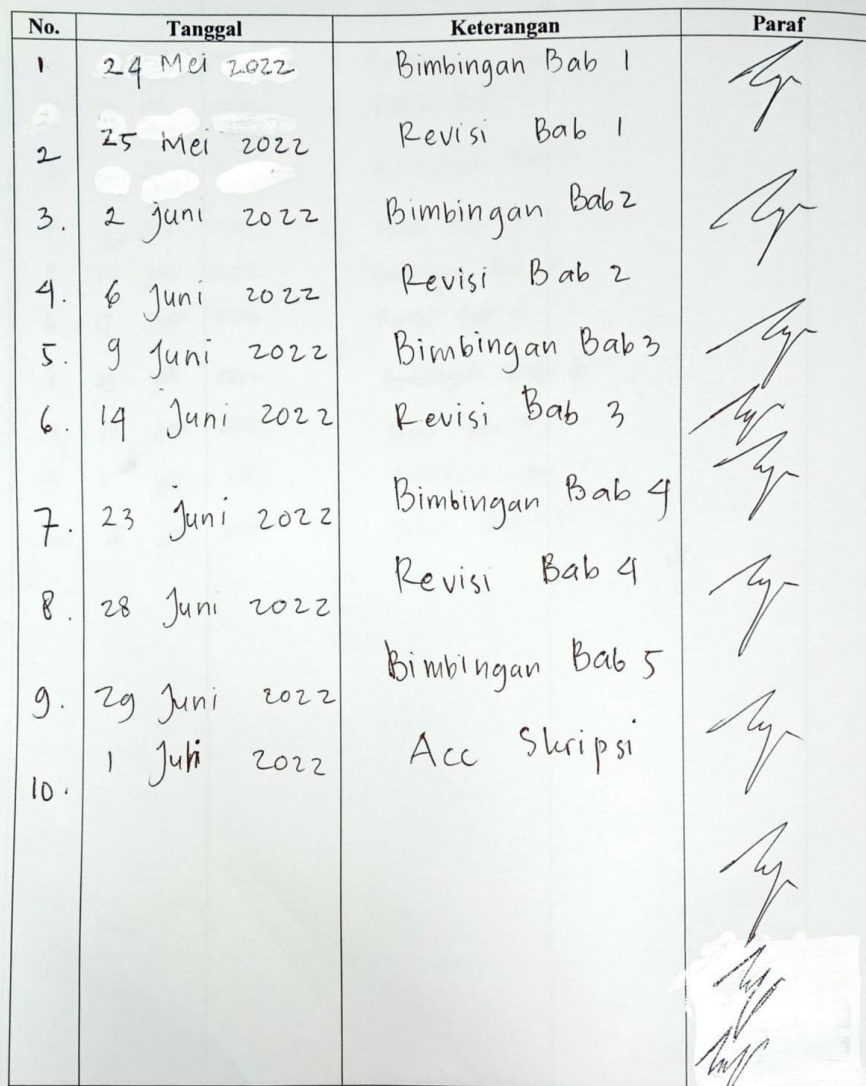 No. Tanggal Keterangan Paraf
1 24 Mei 2022 Bimbingan Bab 1
2 25 Mei 2022 Revisi Bab 1
3. 2 Juni 2022 Bimbingan Bab 2
4. 6 Juni 2022 Revisi Bab 2
5. 9 Juni 2022 Bimbingan Bab 3
6. 14 Juni 2022 Revisi Bab 3
7. 23 Juni 2022 Bimbingan Bab 4
8. 28 Juni 2022 Revisi Bab 4
9. 29 Juni 2022 Bimbingan Bab 5
10. 1 Juli 2022 Acc Skripsi